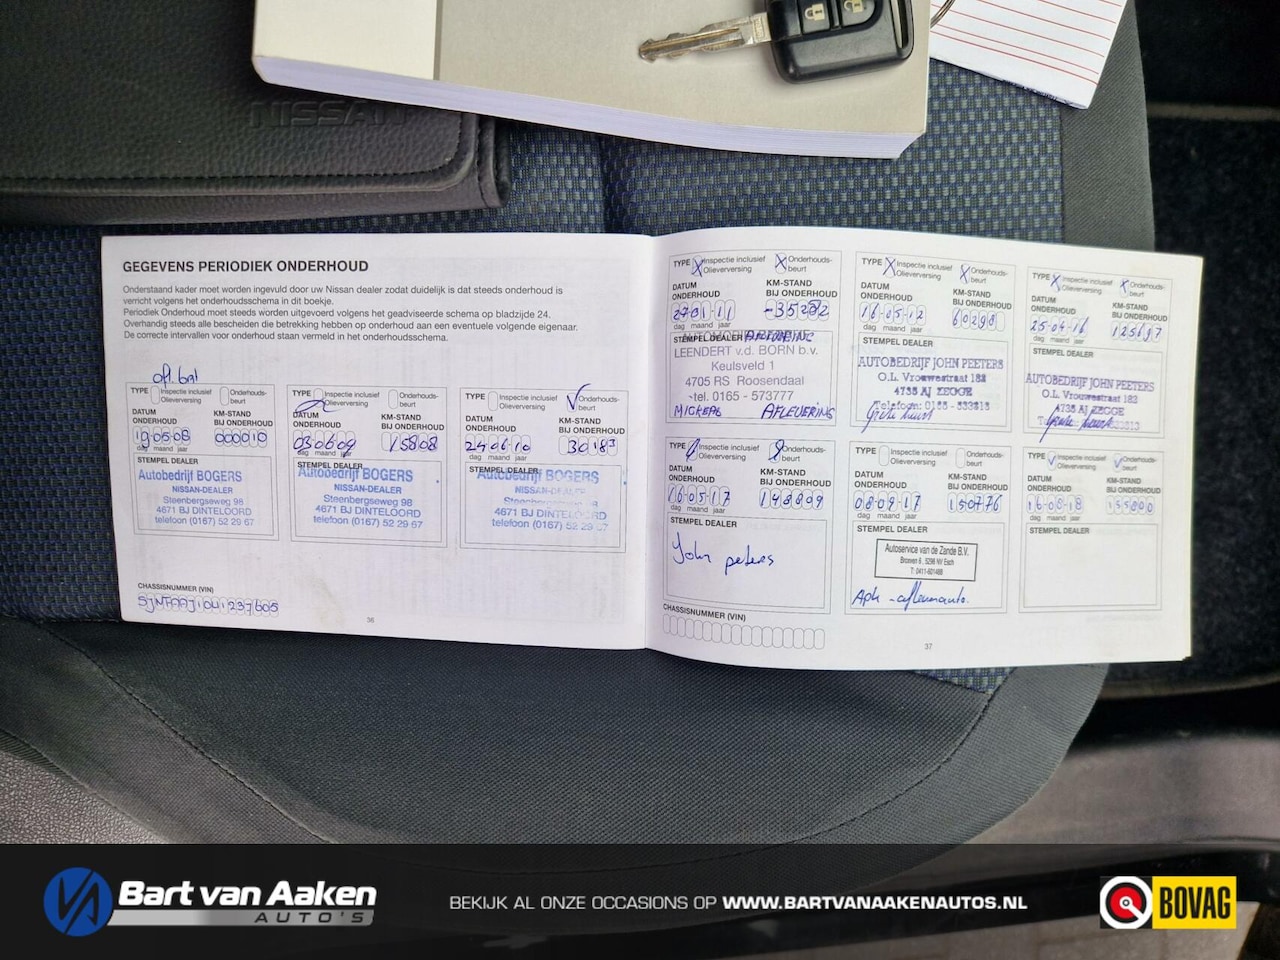 NISSAN
GEGEVENS PERIODIEK ONDERHOUD
Onderstaand kader moet worden ingevuld door uw Nissan dealer zodat duidelijk is dat steeds onderhoud is
verricht volgens het onderhoudsschema in dit boekje.
Periodiek Onderhoud moet steeds worden uitgevoerd volgens het geadviseerde schema op bladzijde 24.
Overhandig steeds alle bescheiden die betrekking hebben op onderhoud aan een eventuele volgende eigenaar.
De correcte intervallen voor onderhoud staan vermeld in het onderhoudsschema.
TYPE Inspectie inclusief Olieverversing Onderhouds-beurt
DATUM ONDERHOUD KM-STAND BIJ ONDERHOUD
19 05 08 000010
dag maand jaar
STEMPEL DEALER
Autobedrijf BOGERS
NISSAN-DEALER
Steenbergseweg 98
4671 BJ DINTELOORD
telefoon (0167) 52 29 67
TYPE Inspectie inclusief Olieverversing Onderhouds-beurt
DATUM ONDERHOUD KM-STAND BIJ ONDERHOUD
03 06 09 15808
dag maand jaar
STEMPEL DEALER
Autobedrijf BOGERS
NISSAN-DEALER
Steenbergseweg 98
4671 BJ DINTELOORD
telefoon (0167) 52 29 67
TYPE Inspectie inclusief Olieverversing Onderhouds-beurt
DATUM ONDERHOUD KM-STAND BIJ ONDERHOUD
24 06 10
dag maand jaar
STEMPEL DEALER
Autobedrijf BOGERS
NISSAN-DEALER
Steenbergseweg 98
4671 BJ DINTELOORD
telefoon (0167) 52 29 67
CHASSISNUMMER (VIN)
36
TYPE Inspectie inclusief Olieverversing Onderhouds-beurt
DATUM ONDERHOUD KM-STAND BIJ ONDERHOUD
dag maand jaar
STEMPEL DEALER
LEENDERT v.d. BORN b.v.
Keulsveld 1
4705 RS Roosendaal
tel. 0165 - 573777
AFLEVERING
TYPE Inspectie inclusief Olieverversing Onderhouds-beurt
DATUM ONDERHOUD KM-STAND BIJ ONDERHOUD
16 05 12 60298
dag maand jaar
STEMPEL DEALER
AUTOBEDRIJF JOHN PEETERS
O.L. Vrouwestraat 182
4735 AJ ZEGGE
Telefoon: 0165 - 533213
TYPE Inspectie inclusief Olieverversing Onderhouds-beurt
DATUM ONDERHOUD KM-STAND BIJ ONDERHOUD
25 04 16 125617
dag maand jaar
STEMPEL DEALER
AUTOBEDRIJF JOHN PEETERS
O.L. Vrouwestraat 182
4735 AJ ZEGGE
TYPE Inspectie inclusief Olieverversing Onderhouds-beurt
DATUM ONDERHOUD KM-STAND BIJ ONDERHOUD
16 05 17 148809
dag maand jaar
STEMPEL DEALER
John peters
TYPE Inspectie inclusief Olieverversing Onderhouds-beurt
DATUM ONDERHOUD KM-STAND BIJ ONDERHOUD
08 09 17 150776
dag maand jaar
STEMPEL DEALER
Autoservice van de Zande B.V.
Broxven 6, 5296 NV Esch
T: 0411-601488
TYPE Inspectie inclusief Olieverversing Onderhouds-beurt
DATUM ONDERHOUD KM-STAND BIJ ONDERHOUD
16 08 18 155800
dag maand jaar
STEMPEL DEALER
CHASSISNUMMER (VIN)
37
Bart van Aaken
AUTO'S
BEKIJK AL ONZE OCCASIONS OP WWW.BARTVANAAKENAUTOS.NL
BOVAG